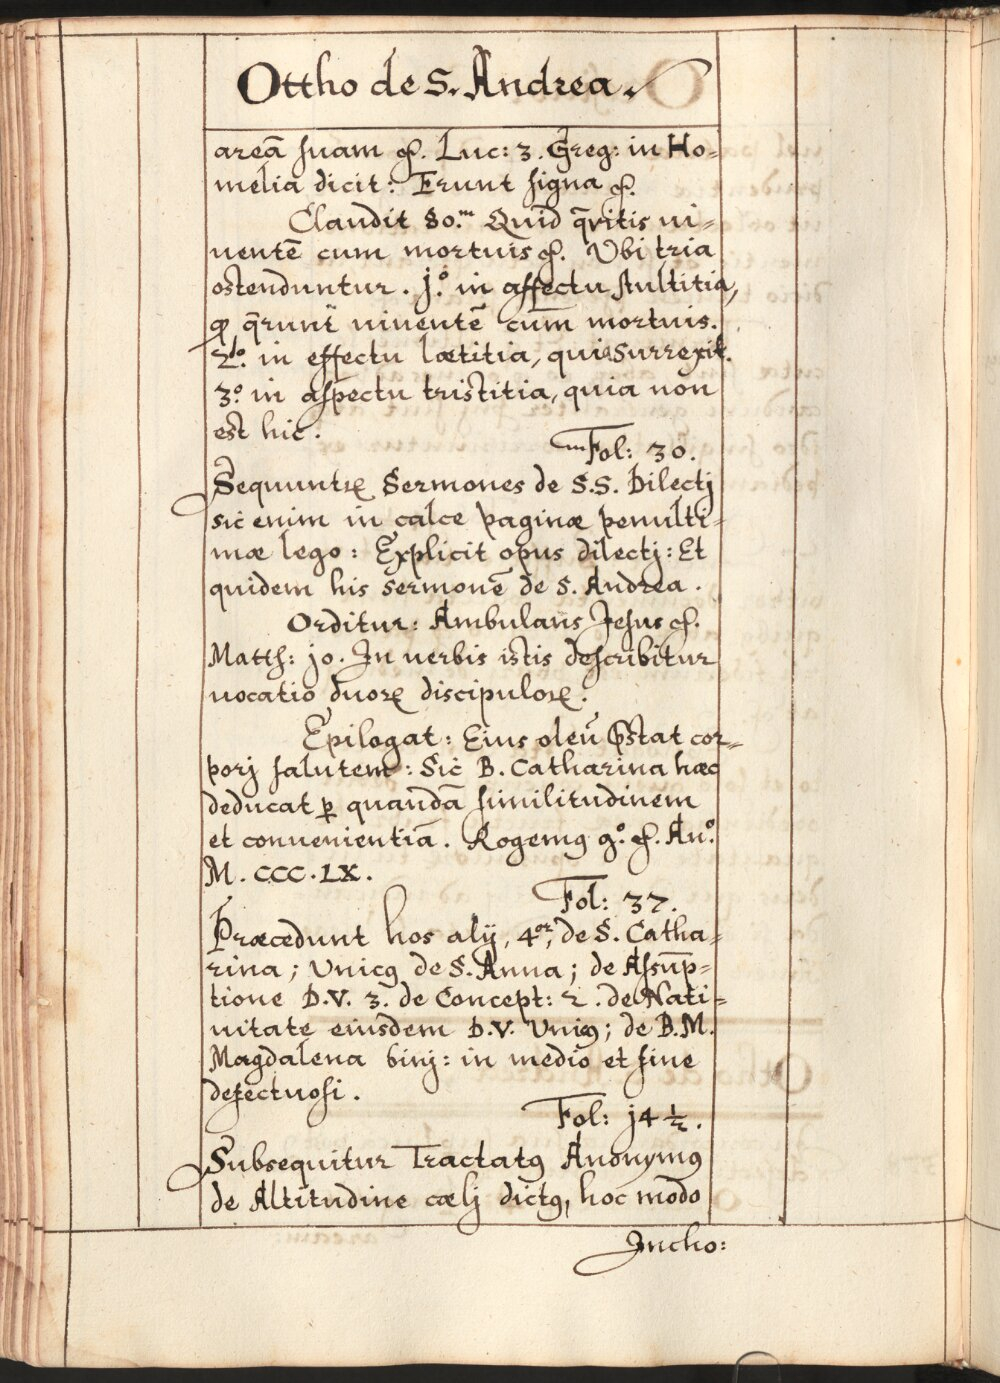 Ottho de S. Andrea.
areā suam &. Luc: 3. Greg: in Ho-
melia dicit: Erunt signa &.
Claudit 80.m Quid q̄ritis ui-
uentē cum mortuis &. Vbi tria
ostenduntur. j.o in affectu stultitia,
q̄ q̄runt uiuentē cum mortuis.
2.do in effectu lætitia, quia surrexit.
3.o in aspectu tristitia, quia non
est hic.
Fol: 30.
Sequuntꝝ Sermones de S.S. Dilectj
sic enim in calce paginæ penulti-
mæ lego: Explicit opus dilectj: Et
quidem his sermonē de S. Andrea.
Orditur: Ambulans Jesus &.
Matth: jo. In uerbis istis describitur
uocatio duoꝝ discipuloꝝ.
Epilogat: Eius oleū p̄stat cor-
porj salutem: Sic B. Catharina hæc
deducat ꝑ quandā similitudinem
et conuenientiā. Rogemꝰ g.o &. An.o
M. CCC. LX.
Fol: 37.
Præcedunt hos alij, 4or, de S. Catha-
rina; Unicꝰ de S. Anna; de Assūp-
tione B.V. 3. de Concept: 2. de Nati-
uitate eiusdem B.V. Unicꝰ; de B.M.
Magdalena binj: in medio et fine
defectuosi.
Fol: j4 ½.
Subsequitur Tractatꝰ Anonymꝰ
de Altitudine cælj dictꝰ, hoc modo
Incho: